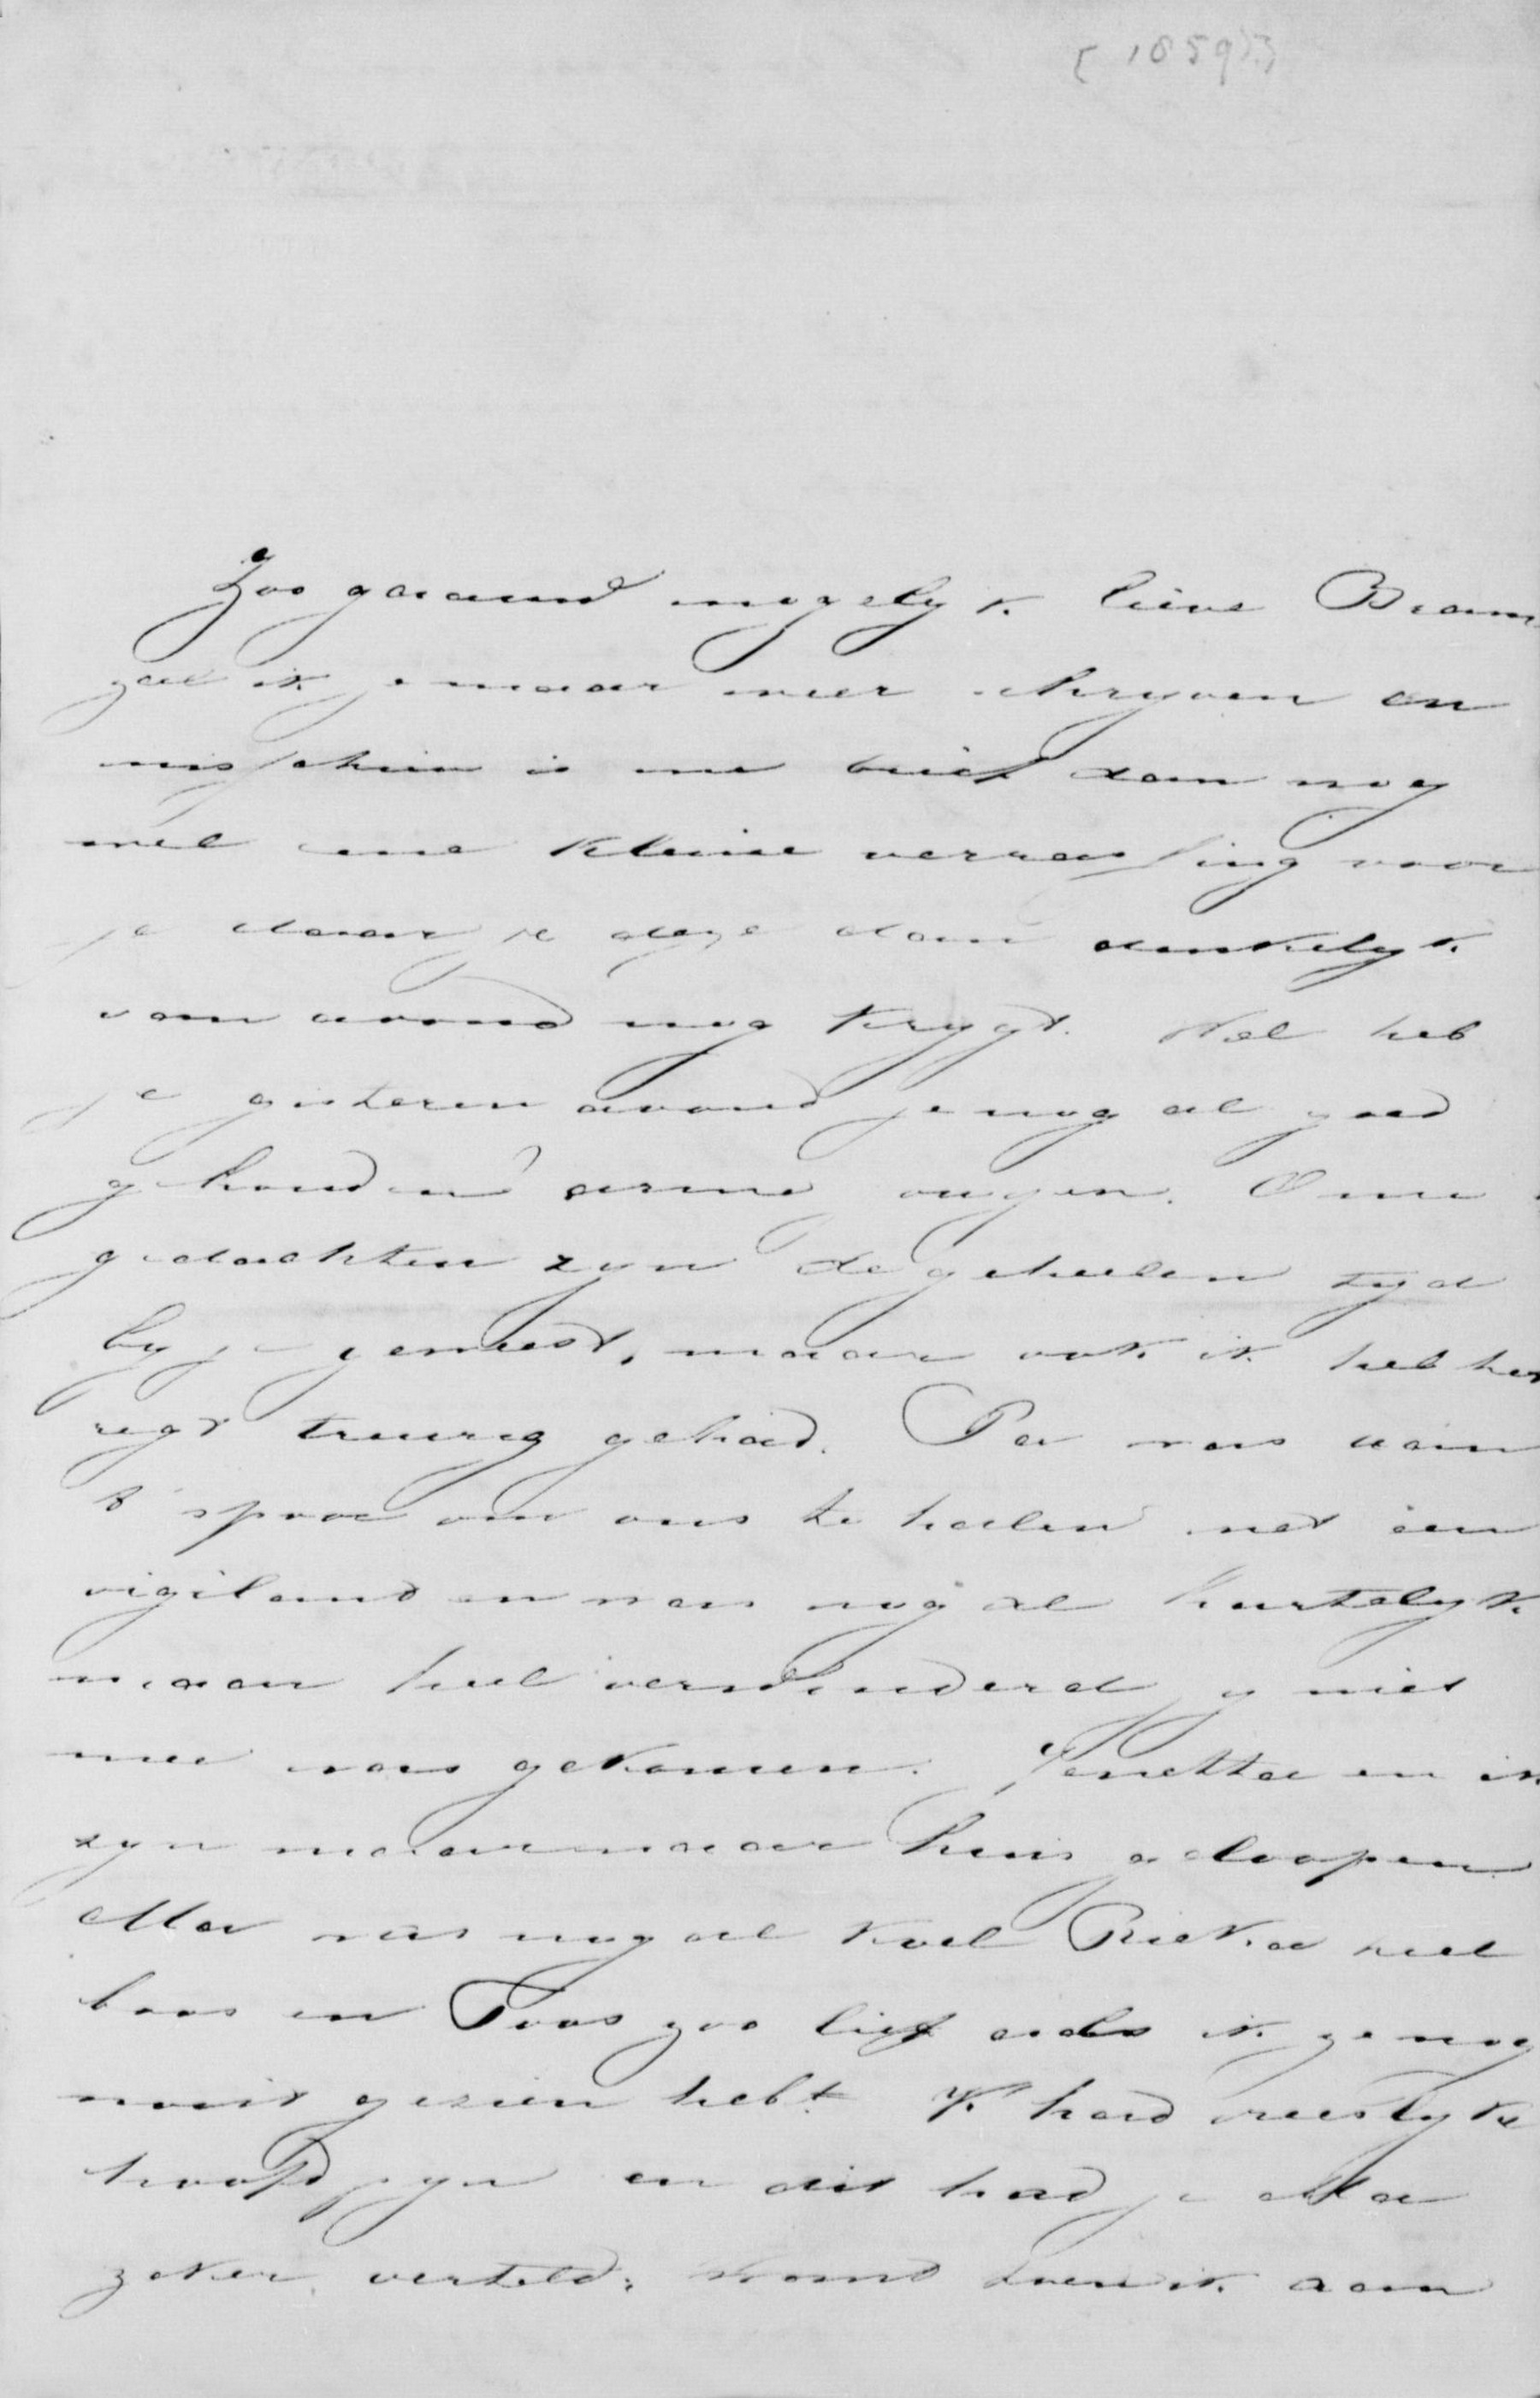 [1859?]
Zoo gaauw mogelyk lieve Bram
zal ik je maar weer schryven en
misschien is me brief dan nog
wel eene kleine verrassing voor
je daar je deze dan denkelyk
van avond nog krygt. Wel heb
je gisteren avond je nog al goed
gehouden arme jongen. O me
gedachten zyn de geheelen tyd
by je geweest, maar ook ik heb het
regt treurig gehad. Pa was aan
't spoor om ons te halen met een
vigiland en was nog al hartelyk
maar heel verwonderd jy niet
mee was gekomen. Janette en ik
zyn maar naar huis geloopen
Ma was nog al koel Rieka heel
boos en Toos zoo lief als ik ze nog
nooit gezien heb. K had vreeslyke
hoofdpyn en dit had je Ma
zeker verteld, want toen ik aan